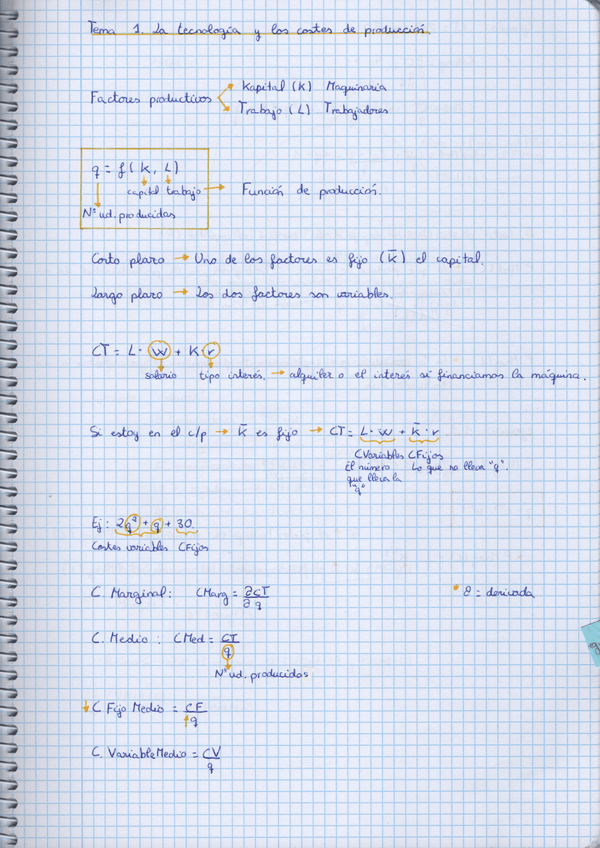 Tema 1. La tecnología y los costes de producción.
Factores productivos → Kapital (K) Maquinaria
→ Trabajo (L) Trabajadores
q = f(K, L)
capital trabajo → Función de producción.
Nº ud. producidas
Corto plazo → Uno de los factores es fijo (K̄) el capital.
Largo plazo → Los dos factores son variables.
CT = L · w + K · r
salario tipo interés. → alquiler o el interés si financiamos la máquina.
Si estoy en el c/p → K̄ es fijo → CT = L · w + K̄ · r
CVariables CFijos
El número Lo que no lleva "q".
que lleva la
"q"
Ej: 2q² + q + 30
Costes variables CFijos
C. Marginal: CMarg = ∂CT/∂q * ∂ = derivada
C. Medio: CMed = CT/q
Nº ud. producidos
↓ C Fijo Medio = CF/↑q
C. Variable Medio = CV/q